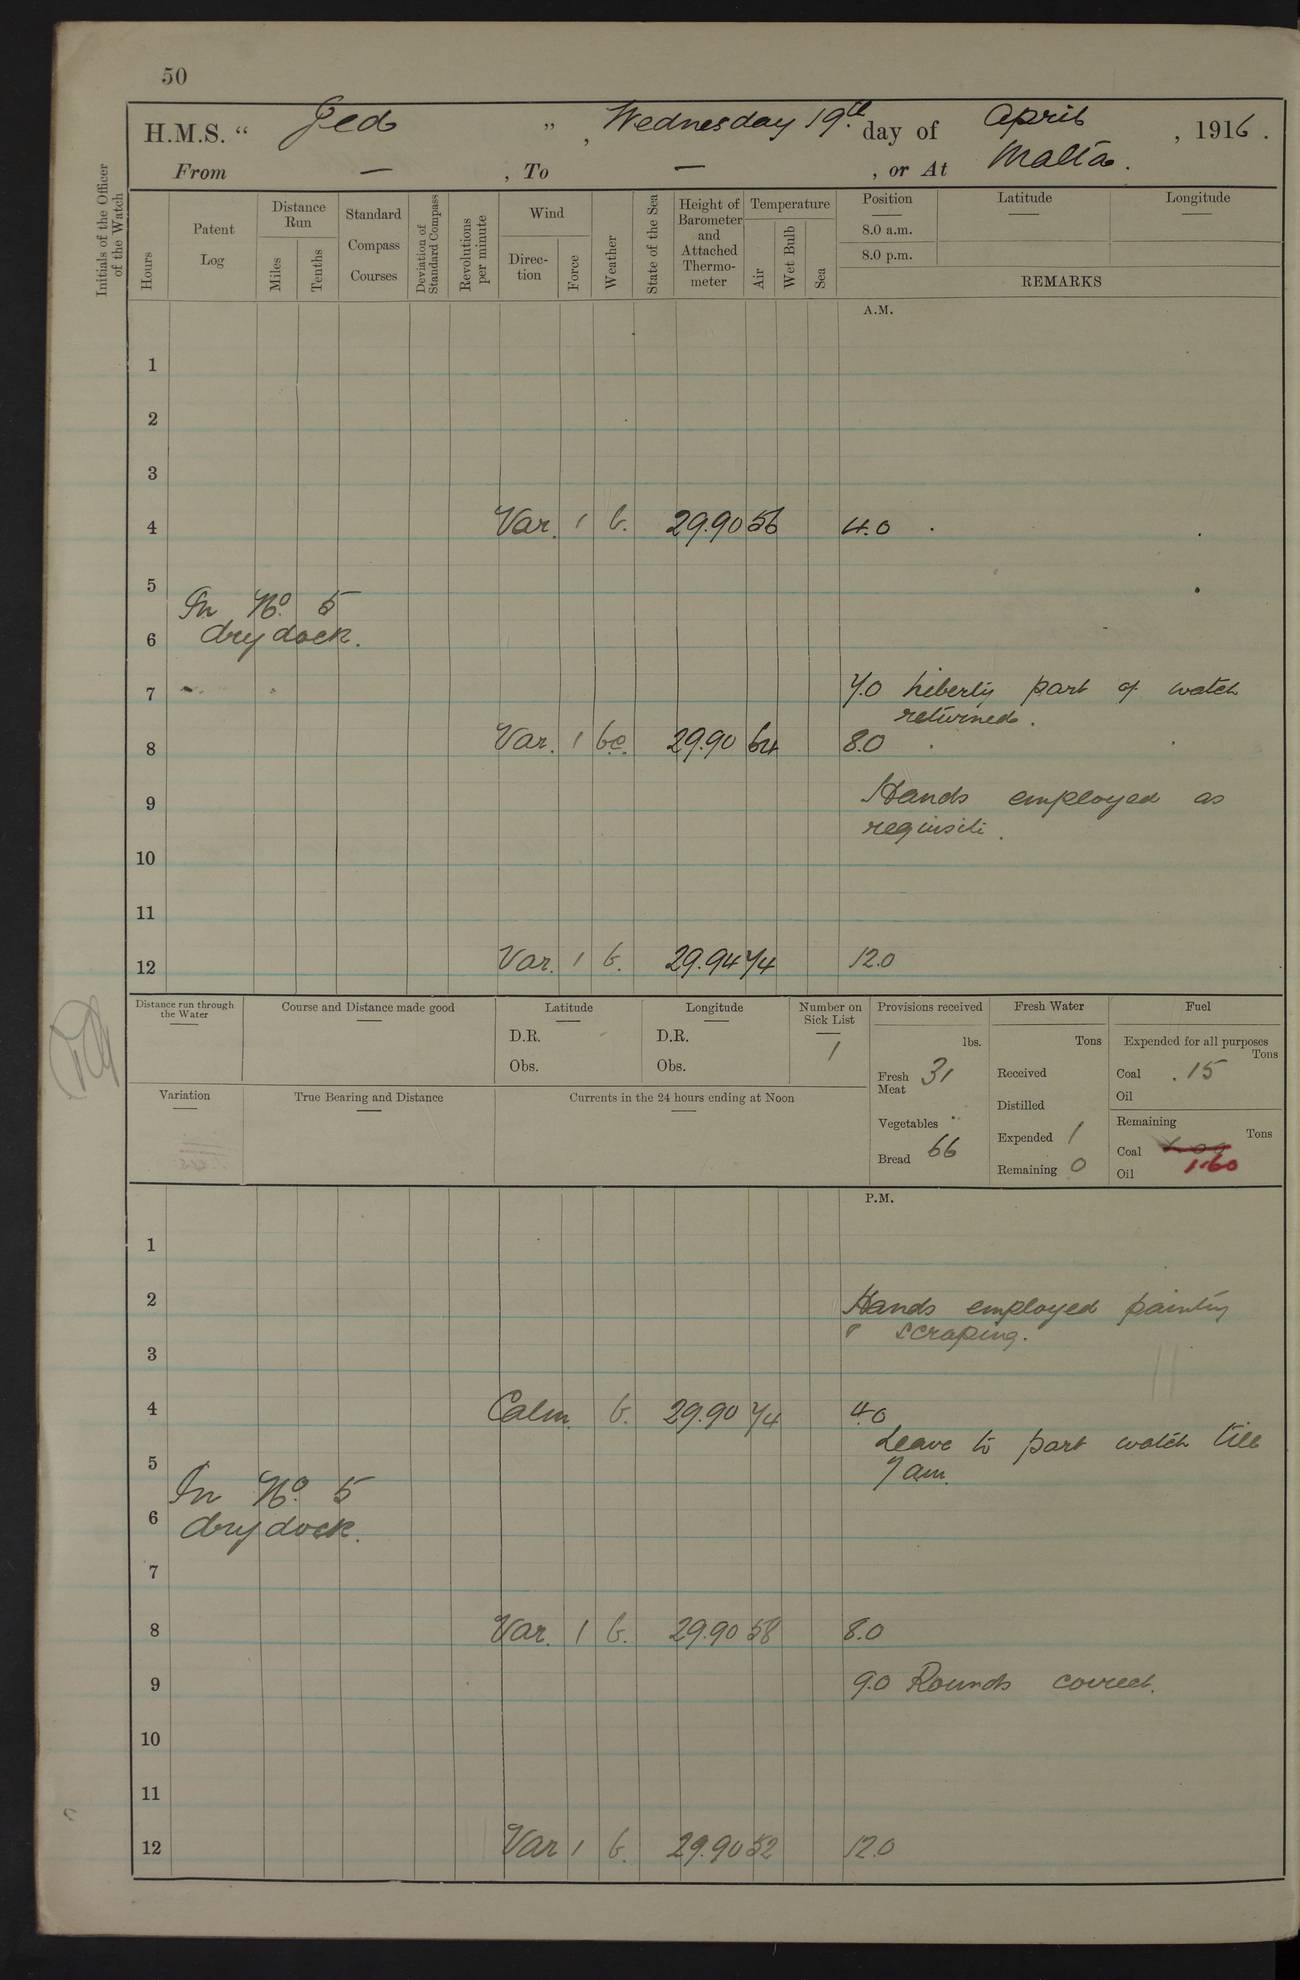 50
H.M.S. “ Jed ” , Wednesday 19th day of April , 1916 .
From — , To — , or At Malta .
Initials of the Officer of the Watch
Hours
Patent Log
Distance Run
Miles
Tenths
Standard Compass Courses
Deviation of Standard Compass
Revolutions per minute
Wind
Direction
Force
Weather
State of the Sea
Height of Barometer and Attached Thermometer
Temperature
Air
Wet Bulb
Sea
Position
8.0 a.m.
8.0 p.m.
Latitude
Longitude
REMARKS
A.M.
1
2
3
4 Var. 1 b. 29.90 56 4.0
5
In No. 5
6 dry dock.
7 7.0 Liberty part of watch
returned.
8 Var. 1 b.c. 29.90 64 8.0
9 Hands employed as
requisite.
10
11
12 Var. 1 b. 29.94 74 12.0
Distance run through the Water
Course and Distance made good
Latitude
D.R.
Obs.
Longitude
D.R.
Obs.
Number on Sick List
1
Provisions received
lbs.
Fresh Meat 31
Vegetables
Bread 66
Fresh Water
Tons
Received
Distilled
Expended 1
Remaining 0
Fuel
Expended for all purposes
Tons
Coal .15
Oil
Remaining
Tons
Coal
1.60
Oil
Variation
True Bearing and Distance
Currents in the 24 hours ending at Noon
P.M.
1
2 Hands employed painting
& scraping.
3
4 Calm. b. 29.90 74 4.0
Leave to part watch till
5 7am.
In No. 5
6 dry dock.
7
8 Var. 1 b. 29.90 58 8.0
9 9.0 Rounds correct.
10
11
12 Var 1 b. 29.90 52 12.0